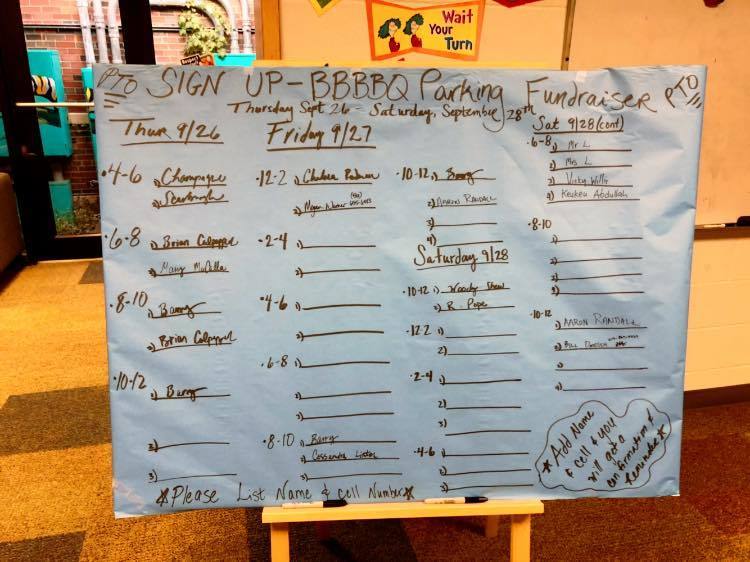 Wait
Your
Turn
PTO SIGN UP-BBBBQ Parking Fundraiser PTO
Thursday Sept 26 - Saturday, September 28th
Thur 9/26
·4-6 1) Champagne
2)
·6-8 1) Brian Culpepper
2) Mary McCalla
·8-10 1) Barry
2) Brian Culpepper
·10-12 1) Barry
2)
3)
Friday 9/27
·12-2 1) Chelsea Palmer
2) Megan
·2-4 1)
2)
·4-6 1)
2)
·6-8 1)
2)
3)
·8-10 1) Barry
2) Cassandra
·10-12 1) Barry
2) AARON RANDALL
3)
4)
Saturday 9/28
·10-12 1) Woody Shaw
2) R. Pope
·12-2 1)
2)
·2-4 1)
2)
3)
·4-6 1)
2)
3)
Sat 9/28 (cont)
·6-8 1) Mr L
2) Mrs L
3) Vicky Willis
4) Keukeu Abdullah
·8-10
1)
2)
3)
4)
·10-12
1) AARON RANDALL
2) BILL
3)
4)
*Add Name
& cell & you
will get a
confirmation &
reminder*
*Please List Name & Cell Number*